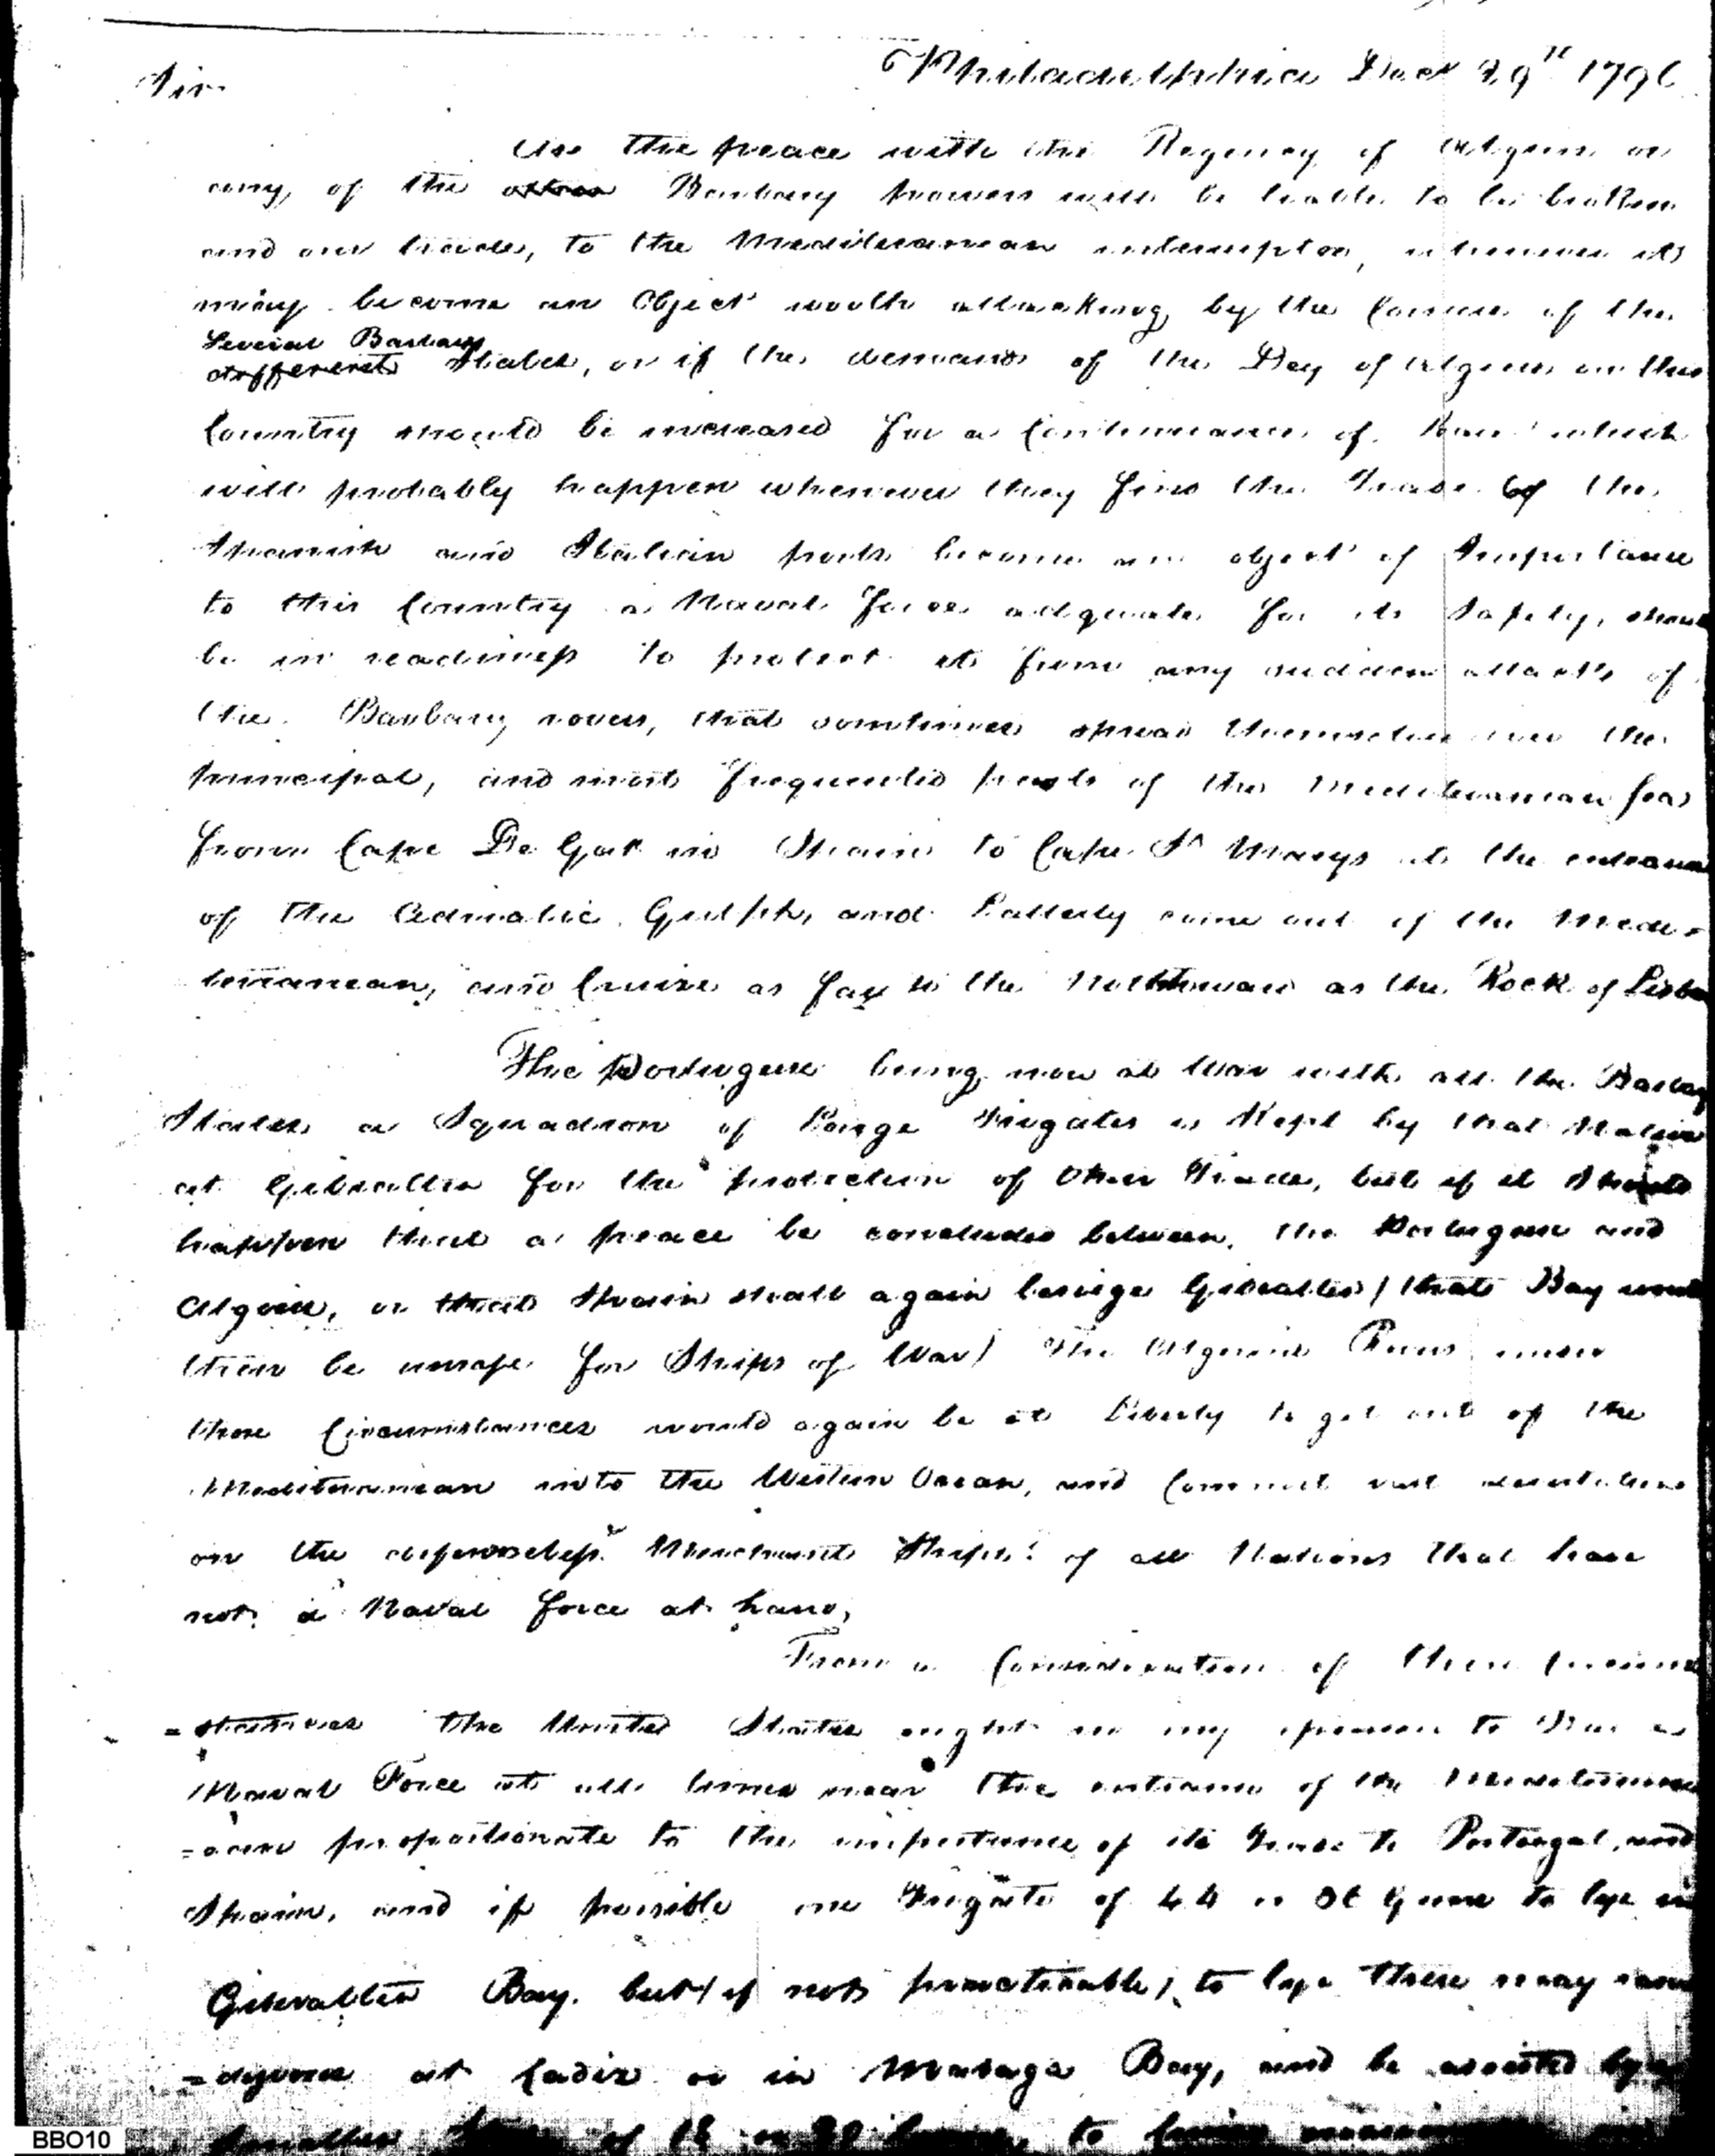 Philadelphia Decr 29th 1796
Sir
As the peace with the Regency of Algiers or
any, of the other Barbary powers will be liable to be broken
and our trade, to the Mediteranean interrupted, whenever it
may become an Object worth attacking by the Corsairs of the
Several Barbary
different States, or if the demands of the Dey of Algiers on this
Country should be increased for a Continuance of Peace which
will probably happen whenever they find the Trade of the
Spanish and Italian ports become an object of Importance
to this Country a Naval force adequate for its Safety, should
be in readiness to protect it from any sudden attacks of
the Barbary rovers, that sometimes spread themselves over the
principal, and most frequented parts of the Mediteranean Sea
from Cape De Gat in Spain to Cape St Marys at the entrance
of the Adriatic Gulph, and Latterly come out of the Medi-
terranean, and Cruize as far to the Northward as the Rock of Lisbon
The Portuguese being now at War with all the Barbary
States a Squadron of Large Frigates is Kept by that Nation
at Gibraltar for the protection of their Trade, but if it Should
happen that a peace be concluded between, the Portuguese and
Algiers, or that Spain shall again besiege Gibralter / that Bay would
then be unsafe for Ships of War / The Algerine under
those Circumstances would again be at Liberty to get out of the
Mediteranean into the Western Ocean, and Commit
on the defenseless Merchant Ships of all Nations that have
not a Naval force at hand,
From a Consideration of these Circum
=stances the United States ought in my opinion to have a
Naval Force at all times near the entrance of the Mediterrane
=ean proportionate to the importance of its Trade to Portugal, and
Spain, and if possible one Frigate of 44 or 36 Guns to lye in
Gibralter Bay. but / if not practicable / to lye there may
at Cadiz or in Malaga Bay, and be assisted by a
of 18 or 20 to
BBO10